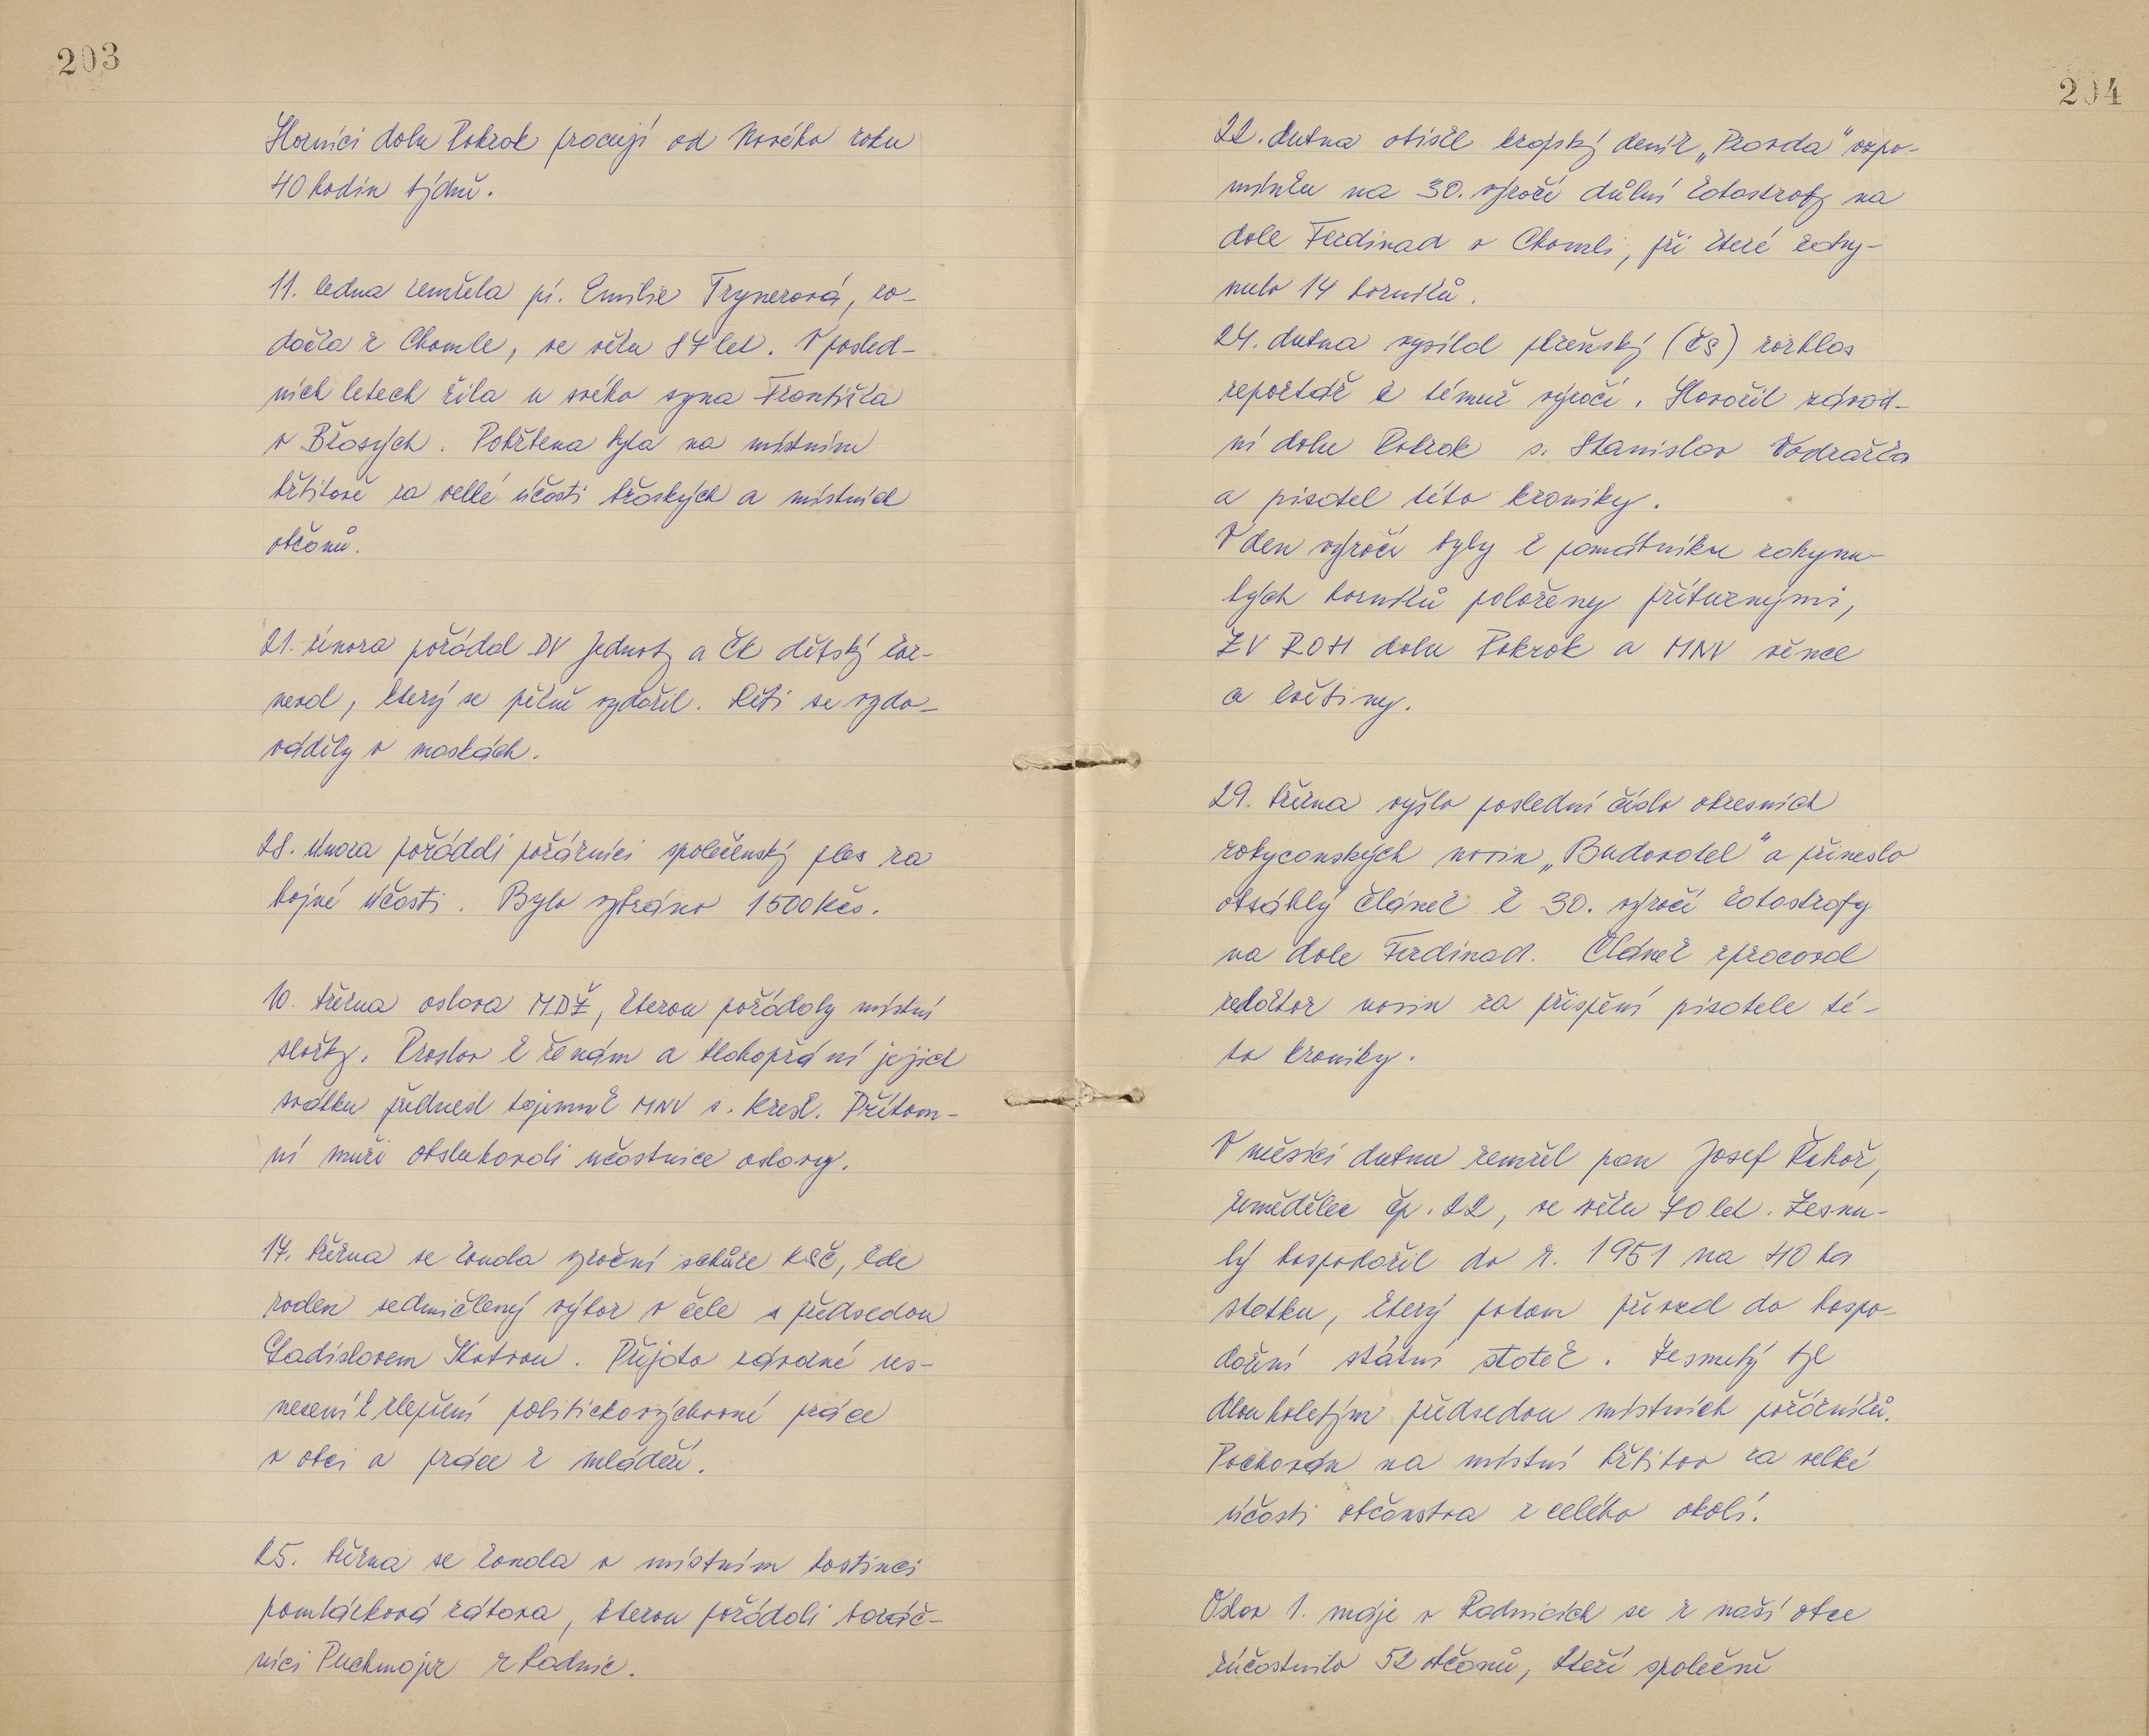 203
Horníci dolu Pokrok pracují od Nového roku
40 hodin týdně.
11. ledna zemřela pí. Emilie Trynerová, ro-
dačka z Chomle, ve věku 87 let. V posled-
ních letech žila u svého syna Františka
v Břasých. Pohřbena byla na místním
hřbitově za velké účasti břaských a místních
občanů.
21. února pořádal DV Jednoty a ČČK dětský kar-
neval, který se pěkně vydařil. Děti se vydo-
váděly v maskách.
28. února pořádali požárníci společenský ples za
hojné účasti. Bylo vybráno 1500 Kčs.
10. března oslava MDŽ, kterou pořádaly místní
složky. Proslov k ženám a blahopřání jejich
svátku přednesl tajemník MNV s. Kresl. Přítom-
ní muži obsluhovali účastnice oslavy.
17. března se konala výroční schůze KSČ, kde
zvolen sedmičlenný výbor v čele s předsedou
Ladislavem Skotvou. Přijato závazné us-
nesení k zlepšení politickovýchovné práce
v obci a práce z mládeží.
25. března se konala v místním hostinci
pomlázková zábava, kterou pořádali baráč-
níci Puchmajer z Radnic.
204
22. dubna otiskl krajský deník „Pravda" vzpo-
mínku na 30. výročí důlní katastrofy na
dole Ferdinad v Chomli, při které zahy-
nulo 14 horníků.
24. dubna vysílal plzeňský (čs) rozhlas
reportáž k témuž výročí. Hovořil závod-
ní dolu Pokrok s. Stanislav Vodražka
a pisatel této kroniky.
V den výročí byly k památníku zahynu-
lých horníků položeny příbuznými,
ZV ROH dolu Pokrok a MNV věnce
a květiny.
29. března vyšlo poslední číslo okresních
rokycanských novin „Budovatel" a přineslo
obsáhlý článek k 30. výročí katastrofy
na dole Ferdinad. Článek zpracoval
redaktor novin za přispění pisatele té-
to kroniky.
V měsíci dubnu zemřel pan Josef Řehoř,
zemědělec čp. 22, ve věku 70 let. Zesnu-
lý hospodařil do r. 1951 na 40 ha
statku, který potom převzal do hospo-
daření státní statek. Zesnulý byl
dlouholetým předsedou místních požárníků.
Pochován na místní hřbitov za velké
účasti občanstva z celého okolí.
Oslav 1. máje v Radnicích se z naší obce
zúčastnilo 52 občanů, kteří společně